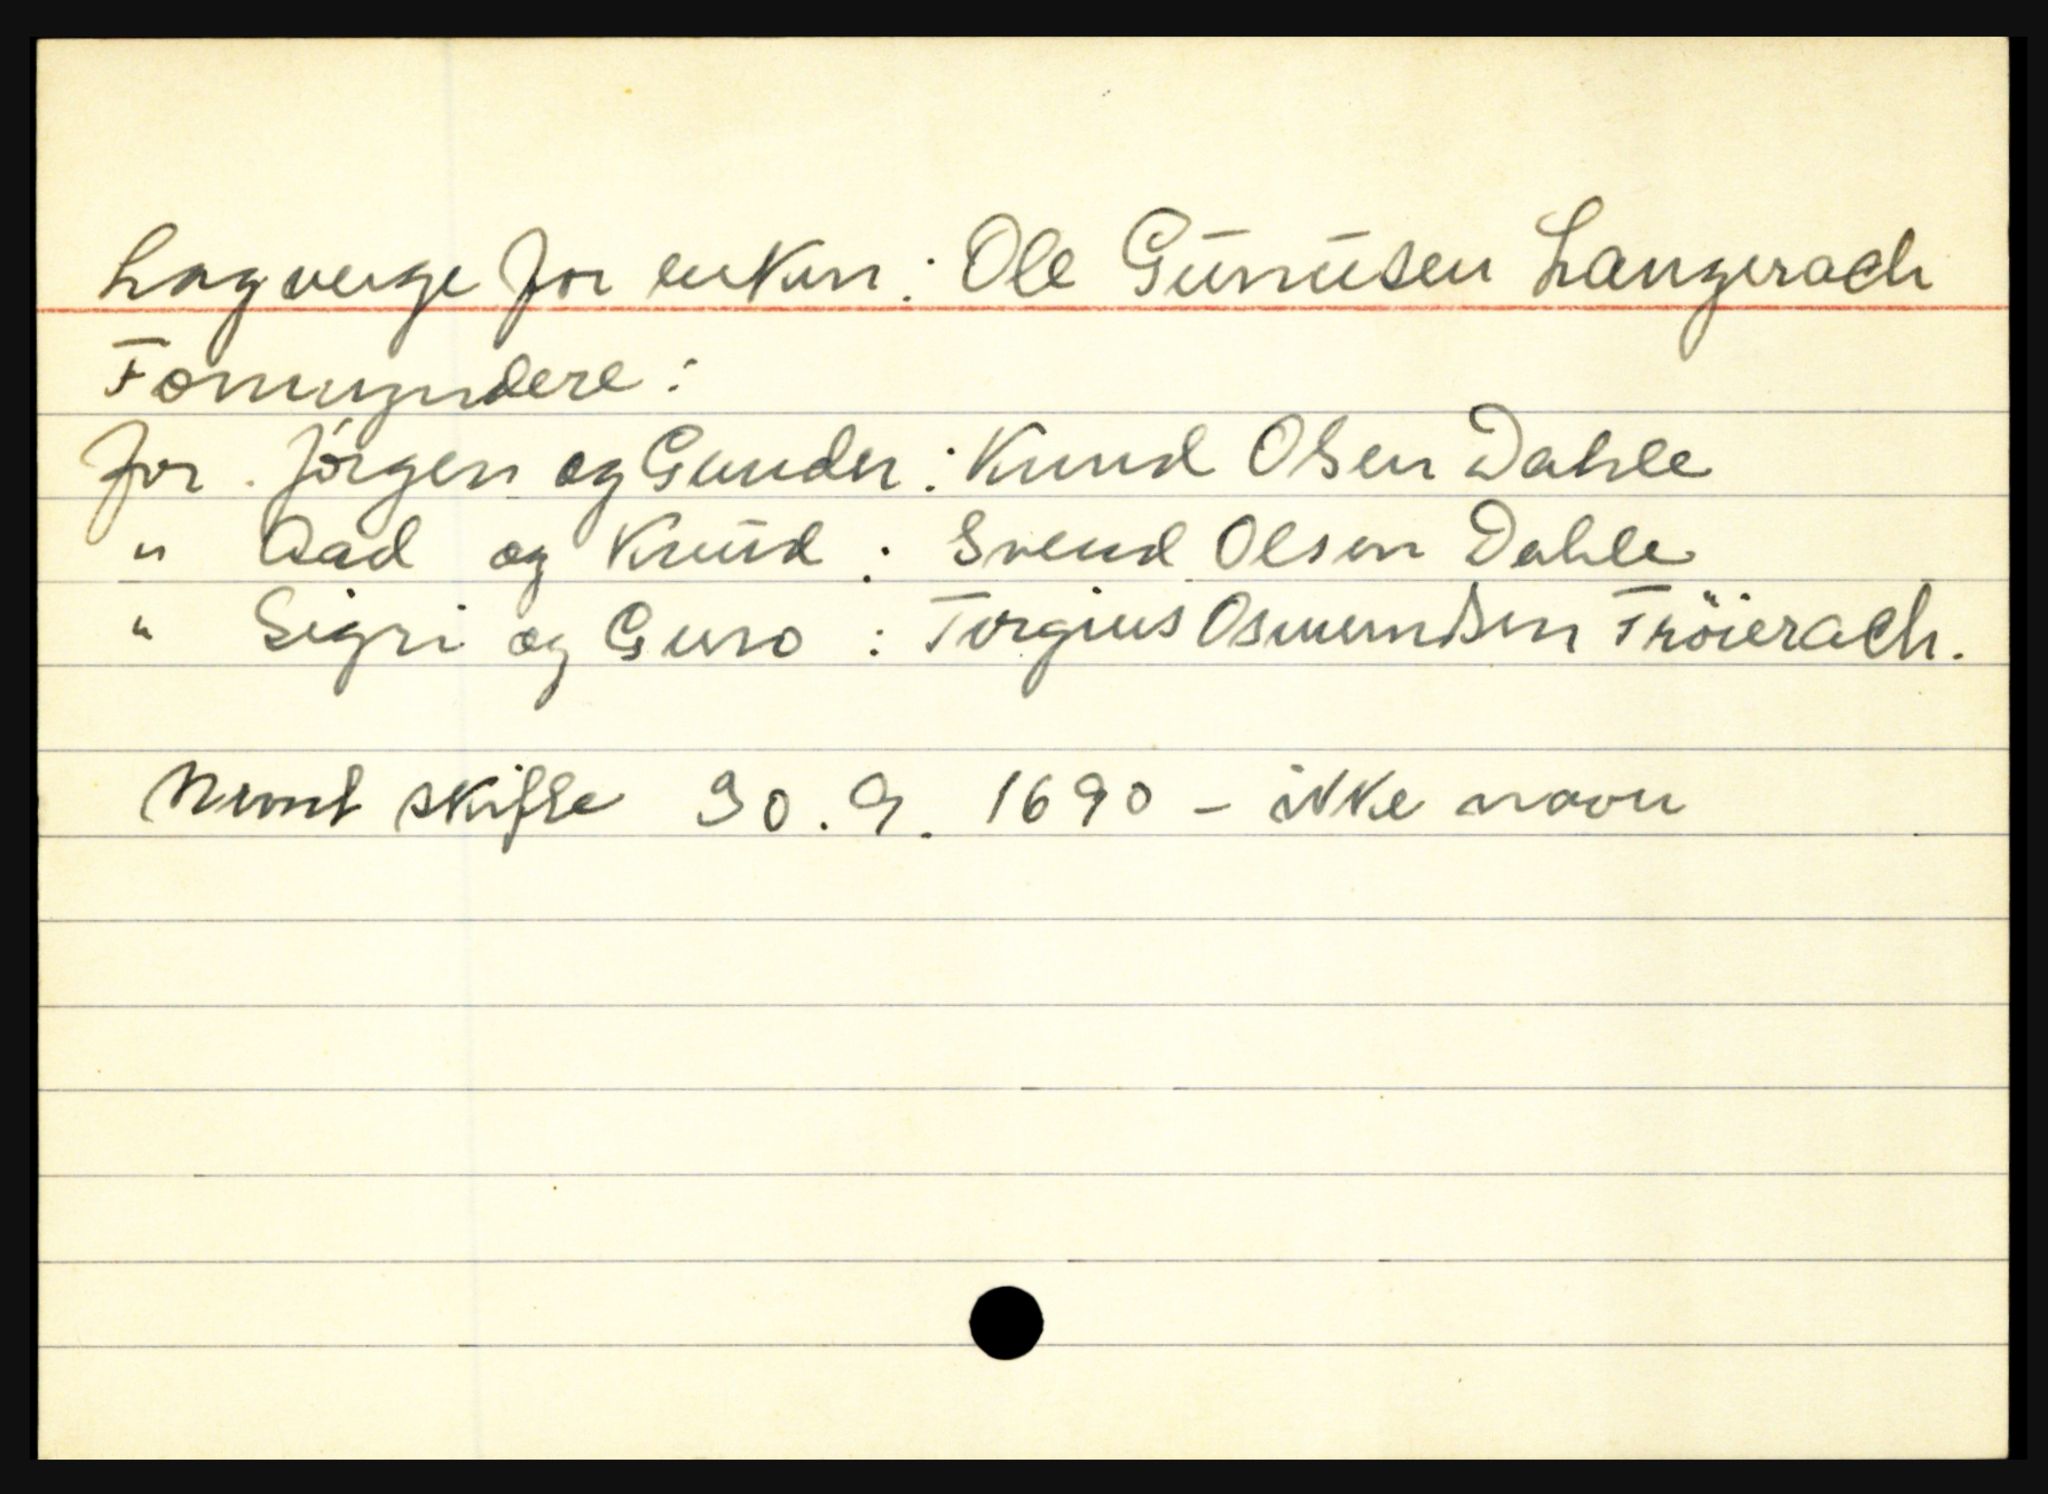 Lagverge for enken: Ole Gunnūsen Langerach
Formyndere:
for Jörgen og Gunder: Knud Olsen Dahle
" Aad og Knūd : Svend Olsen Dahle
" Sigri og Guro : Torgius Osmundsen Tröierach.
Nevnt skifte 30. 9. 1690 - ikke navn